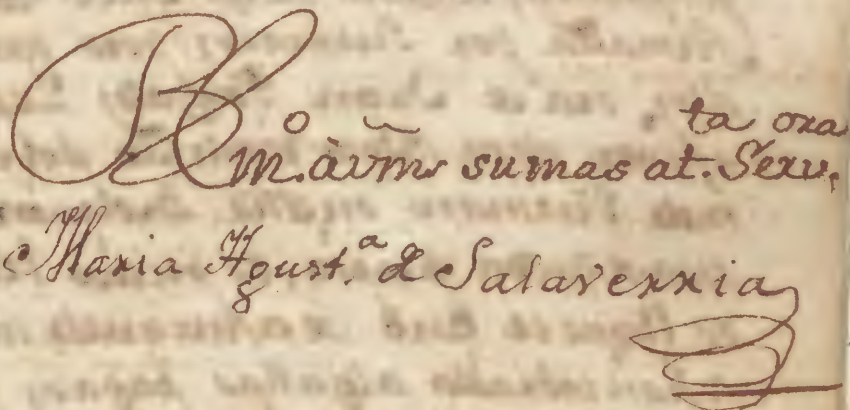 B. L. m.º a v̄m̄ su mas at.ta Serv.ora
Maria Agust.ª de Salaverria